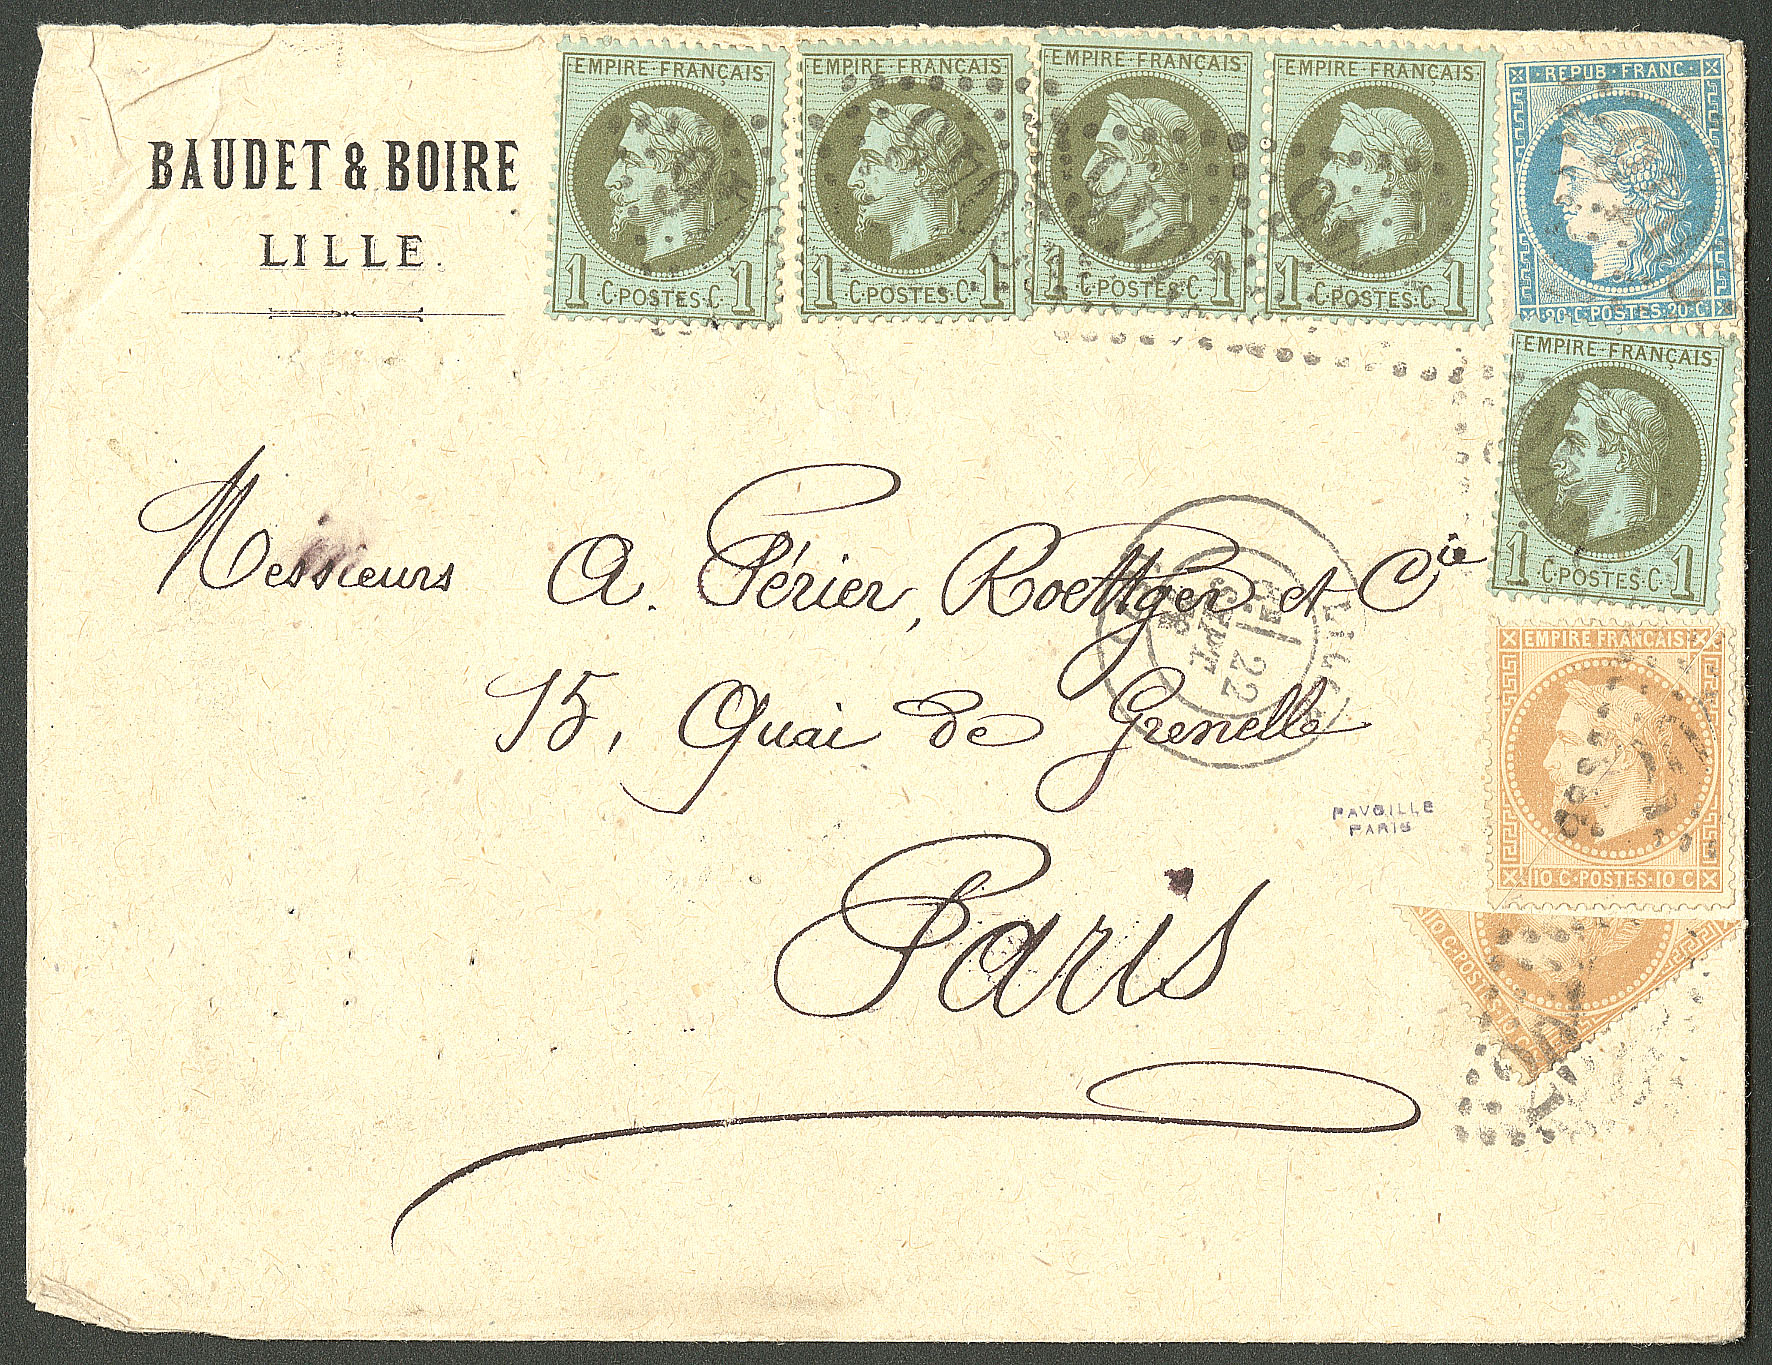 BAUDET & BOIRE
LILLE.
EMPIRE FRANÇAIS
1 C. POSTES. C. 1
EMPIRE FRANÇAIS
1 C. POSTES. C. 1
EMPIRE FRANÇAIS
1 C. POSTES. C. 1
EMPIRE FRANÇAIS
1 C. POSTES. C. 1
REPUB. FRANC.
20 C. POSTES. 20 C.
EMPIRE FRANÇAIS
1 C. POSTES. C. 1
Messieurs A. Périer, Roettger et Cie
15, Quai de Grenelle
Paris
LILLE
22
SEPT
PAVOILLE
PARIS
EMPIRE FRANÇAIS
10 C. POSTES. 10 C.
10 C. POSTES. 10 C.